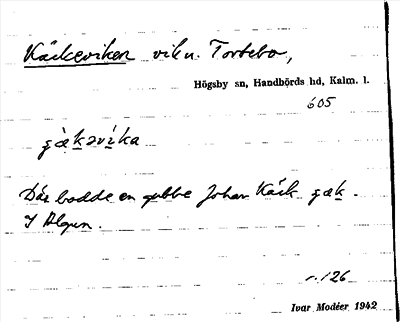 Käckeviken vik n. Torsebo,
Högsby sn, Handbörds hd, Kalm. l.
605
Där bodde en gubbe Johan Käck
I Algun.
r. 126
Ivar Modéer 1942